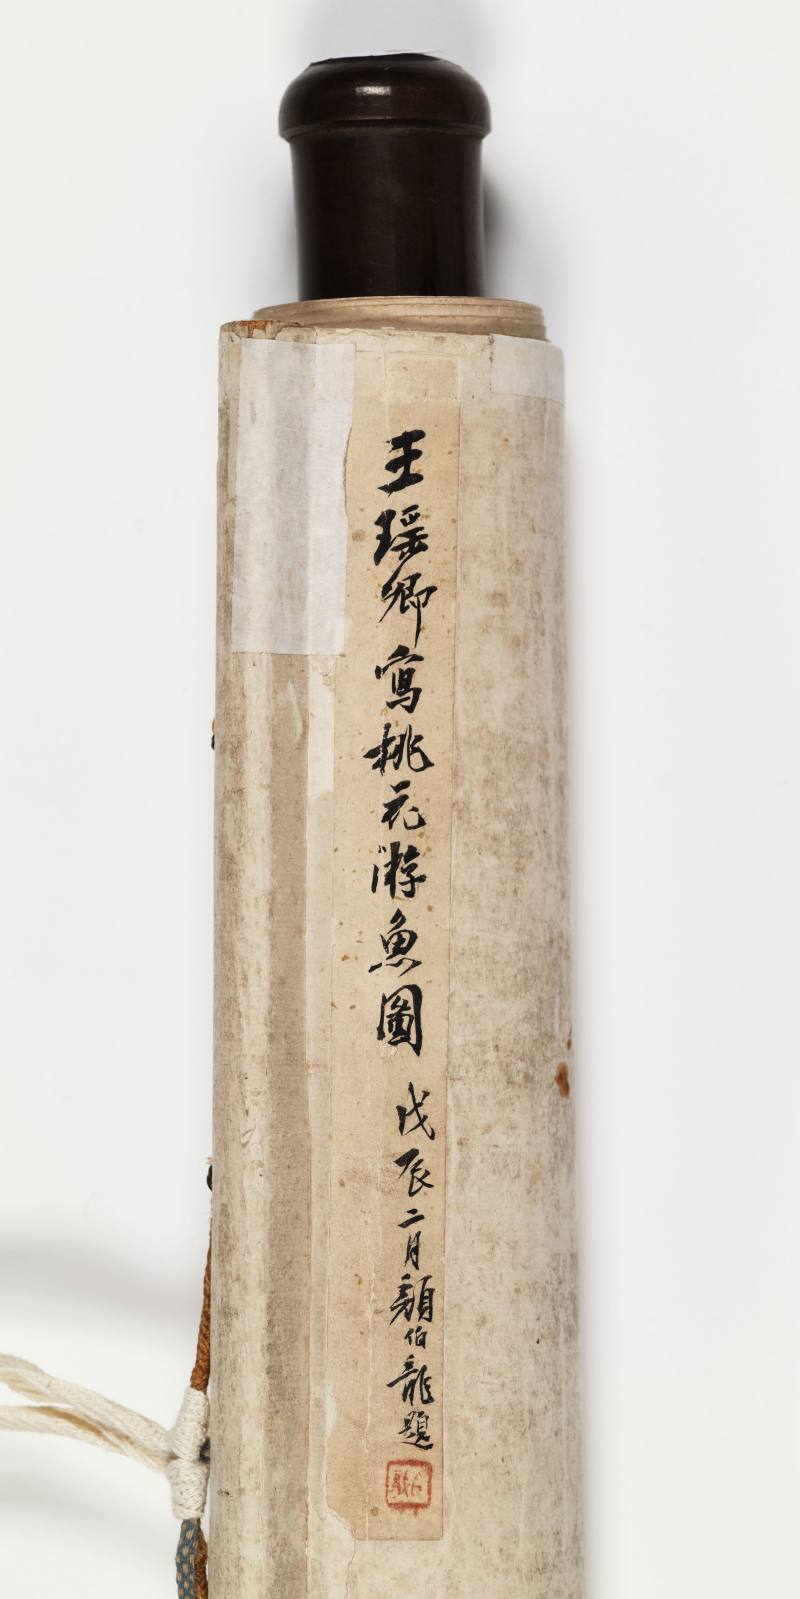 王瑶卿寫桃花游魚圖
戊辰二月顏伯龍題